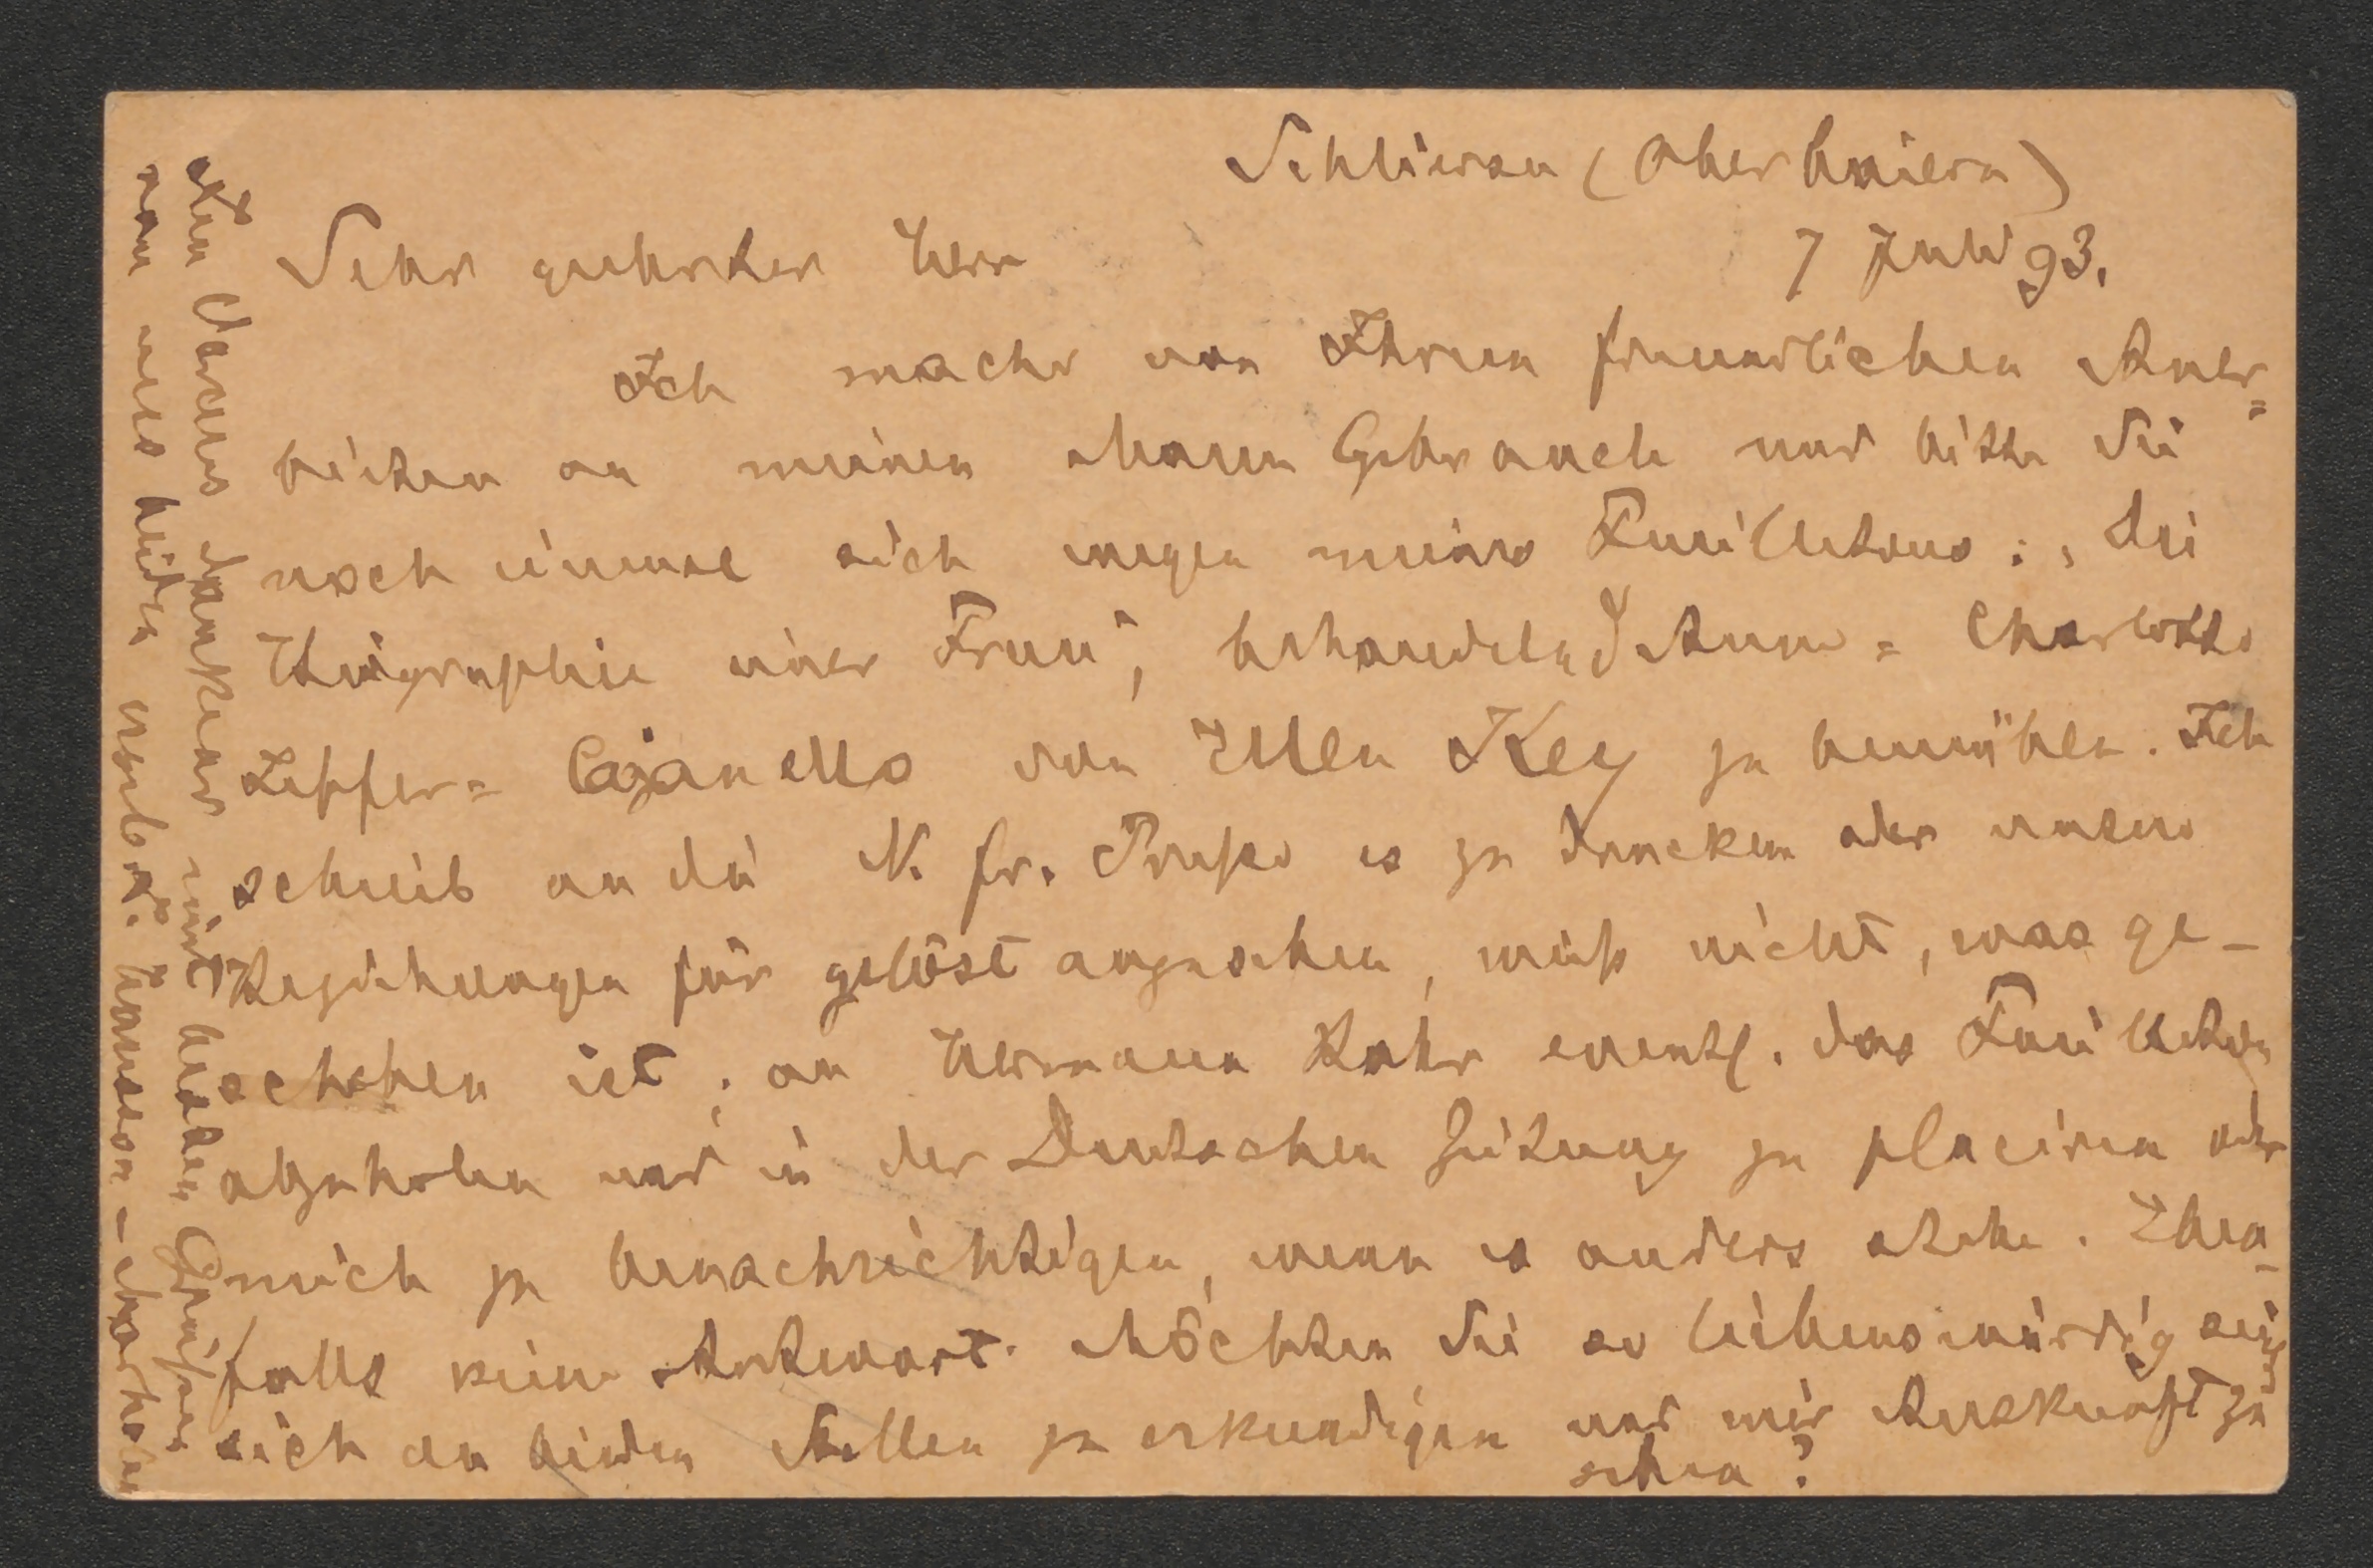 Schliersee (Oberbaiern)
7 Juli 93.
Sehr geehrter Herr
Ich mache von Ihrem freundlichen Aner=
bieten an meinen Mann Gebrauch und bitte Sie
noch einmal sich wegen meines Feuilletons: „Die
Biographie einer Frau", behandelnd Anne=Charlotte
Leffler=Cajanello von Ellen Key zu bemühen. Ich
schrieb an die N. fr. Presse es zu drucken oder unsere
Beziehungen für gelöst anzusehen, weiß nicht, was ge-
schehen ist; an Hermann Bahr eventl. das Feuilleton
abzuholen und in der Deutschen Zeitung zu placiren oder
mich zu benachrichtigen, wenn es anders stehe. Eben-
falls keine Antwort. Möchten Sie so liebenswürdig sein
sich an beiden Stellen zu erkundigen und mir Auskunft zu
geben?
Im Voraus dankbar mit besten Grüßen
von uns beiden ergebst. Hansson-Marholm